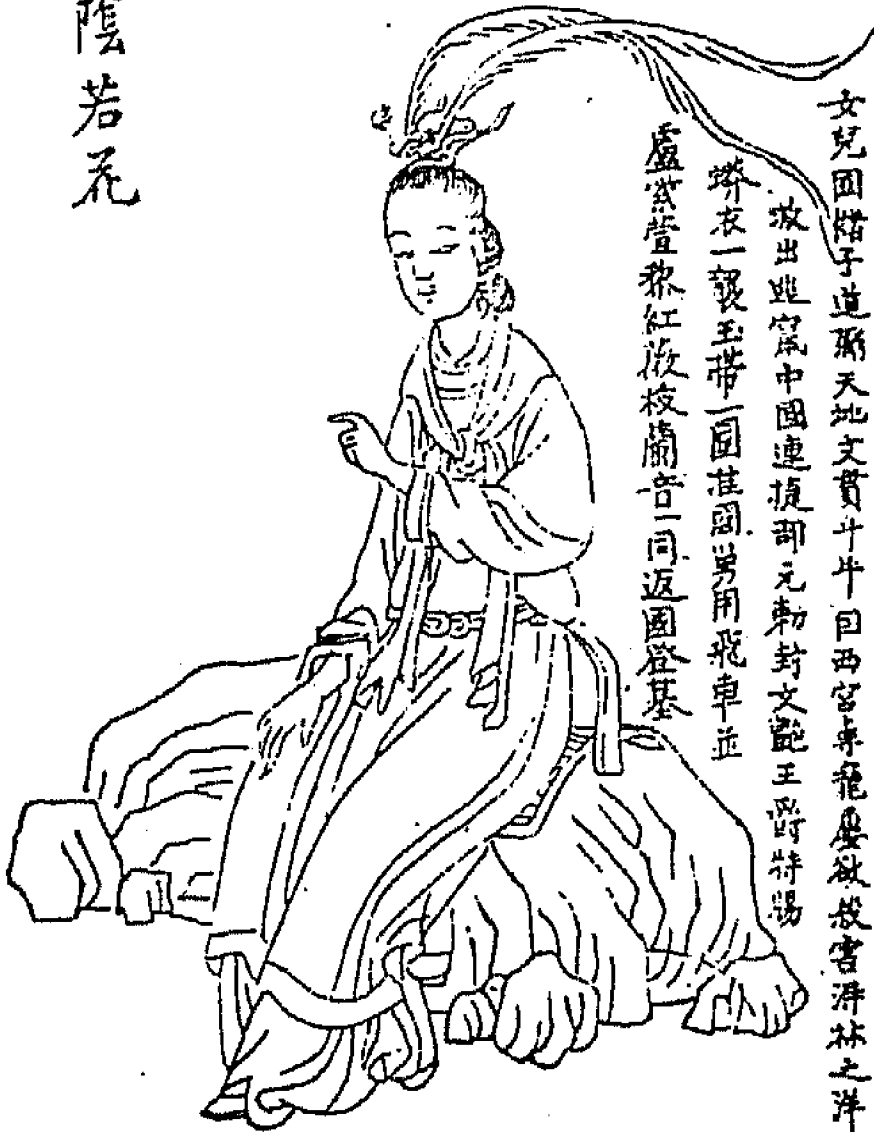 女兒国儲子道漸天地文貫斗牛因西宮專寵屡欲殺害浔林之洋
救出逃竄中國連捷部元勅封文艷王爵特賜
蟒衣一襲玉帶一圍其国舅用飛車並
盧紫萱黎紅薇枝蘭音一同返國登基
陰若花